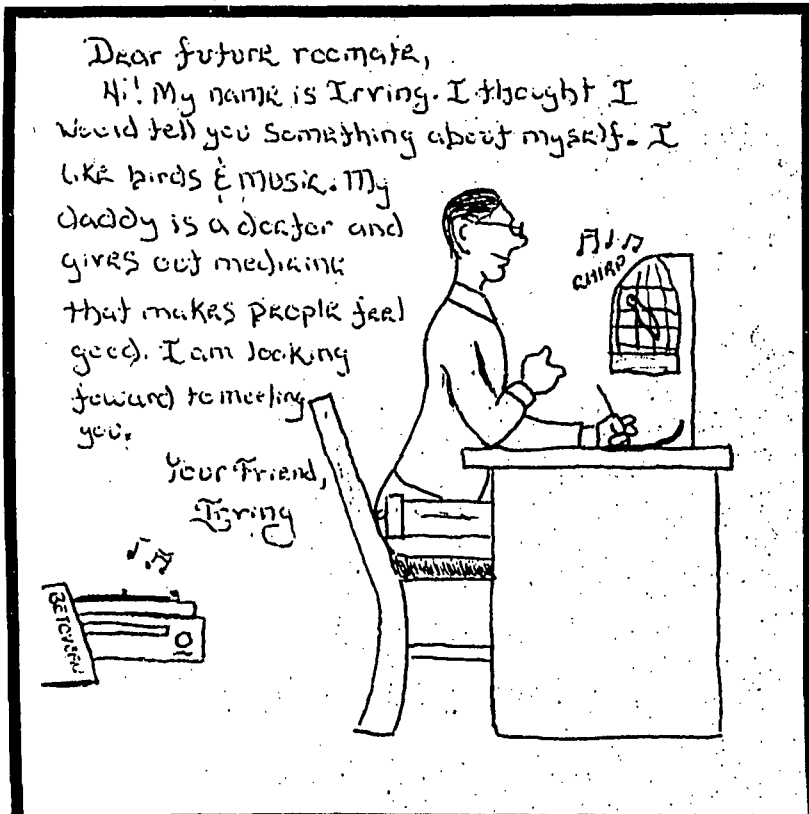 Dear future roomate,
Hi! My name is Irving. I thought I
would tell you something about myself. I
like birds & music. My
daddy is a doctor and
gives out medicine
that makes people feel
good. I am looking
foward to meeting
you.
Your Friend,
Irving
CHIRP
BETOVEEN